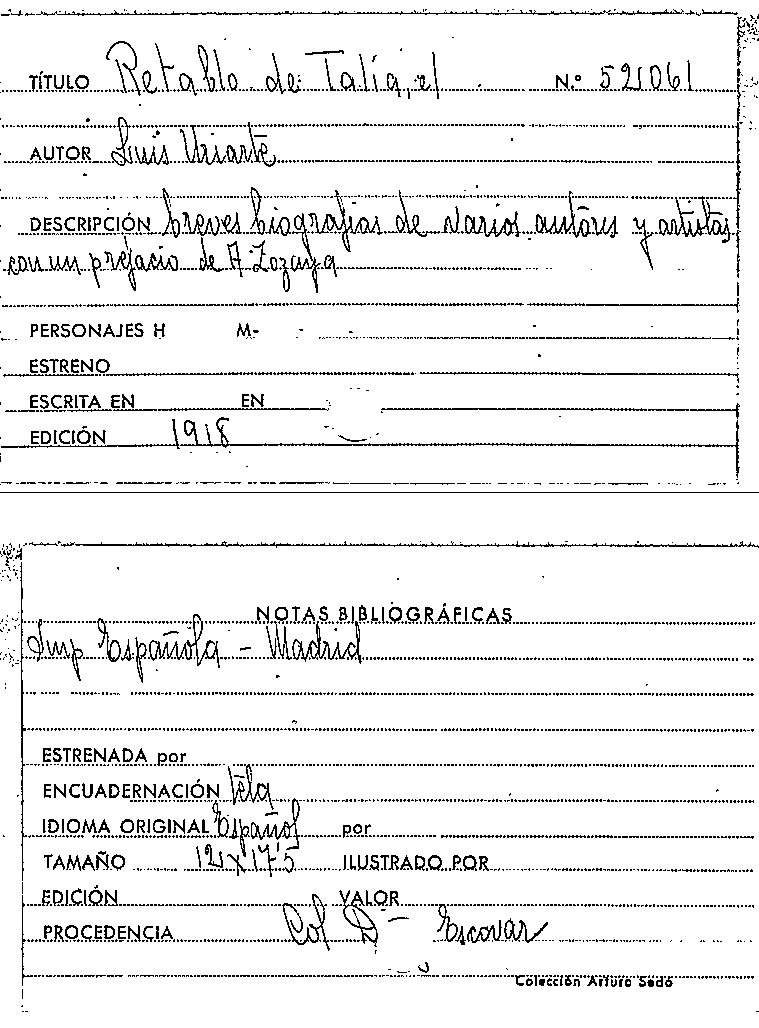 TÍTULO Retablo de Talía, el N.º 521061
AUTOR Luis Uriarte
DESCRIPCIÓN breves biografías de varios autores y artistas
con un prefacio de A Zozaya
PERSONAJES H M-
ESTRENO
ESCRITA EN EN
EDICIÓN 1918
NOTAS BIBLIOGRÁFICAS
Imp Española - Madrid
ESTRENADA por
ENCUADERNACIÓN tela
IDIOMA ORIGINAL Español por
TAMAÑO 121x175 ILUSTRADO POR
EDICIÓN VALOR
PROCEDENCIA Col D- Escovar
Colección Arturo Sedó